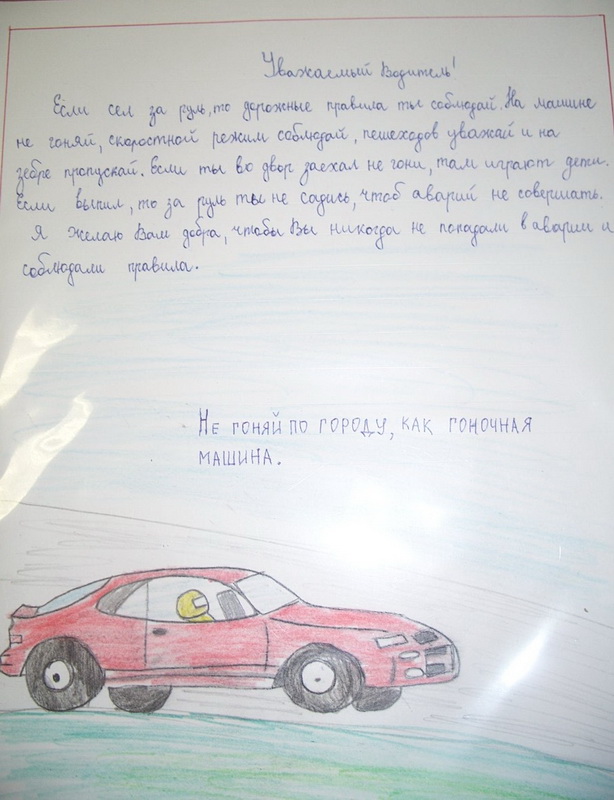 Уважаемый Водитель!
Если сел за руль, то дорожные правила ты соблюдай. На машине
не гоняй, скоростной режим соблюдай, пешеходов уважай и на
зебре пропускай. Если ты во двор заехал не гони, там играют дети.
Если выпил, то за руль ты не садись, чтоб аварий не совершать.
Я желаю Вам добра, чтобы Вы никогда не попадали в аварии и
соблюдали правила.
Не гоняй по городу, как гоночная
машина.